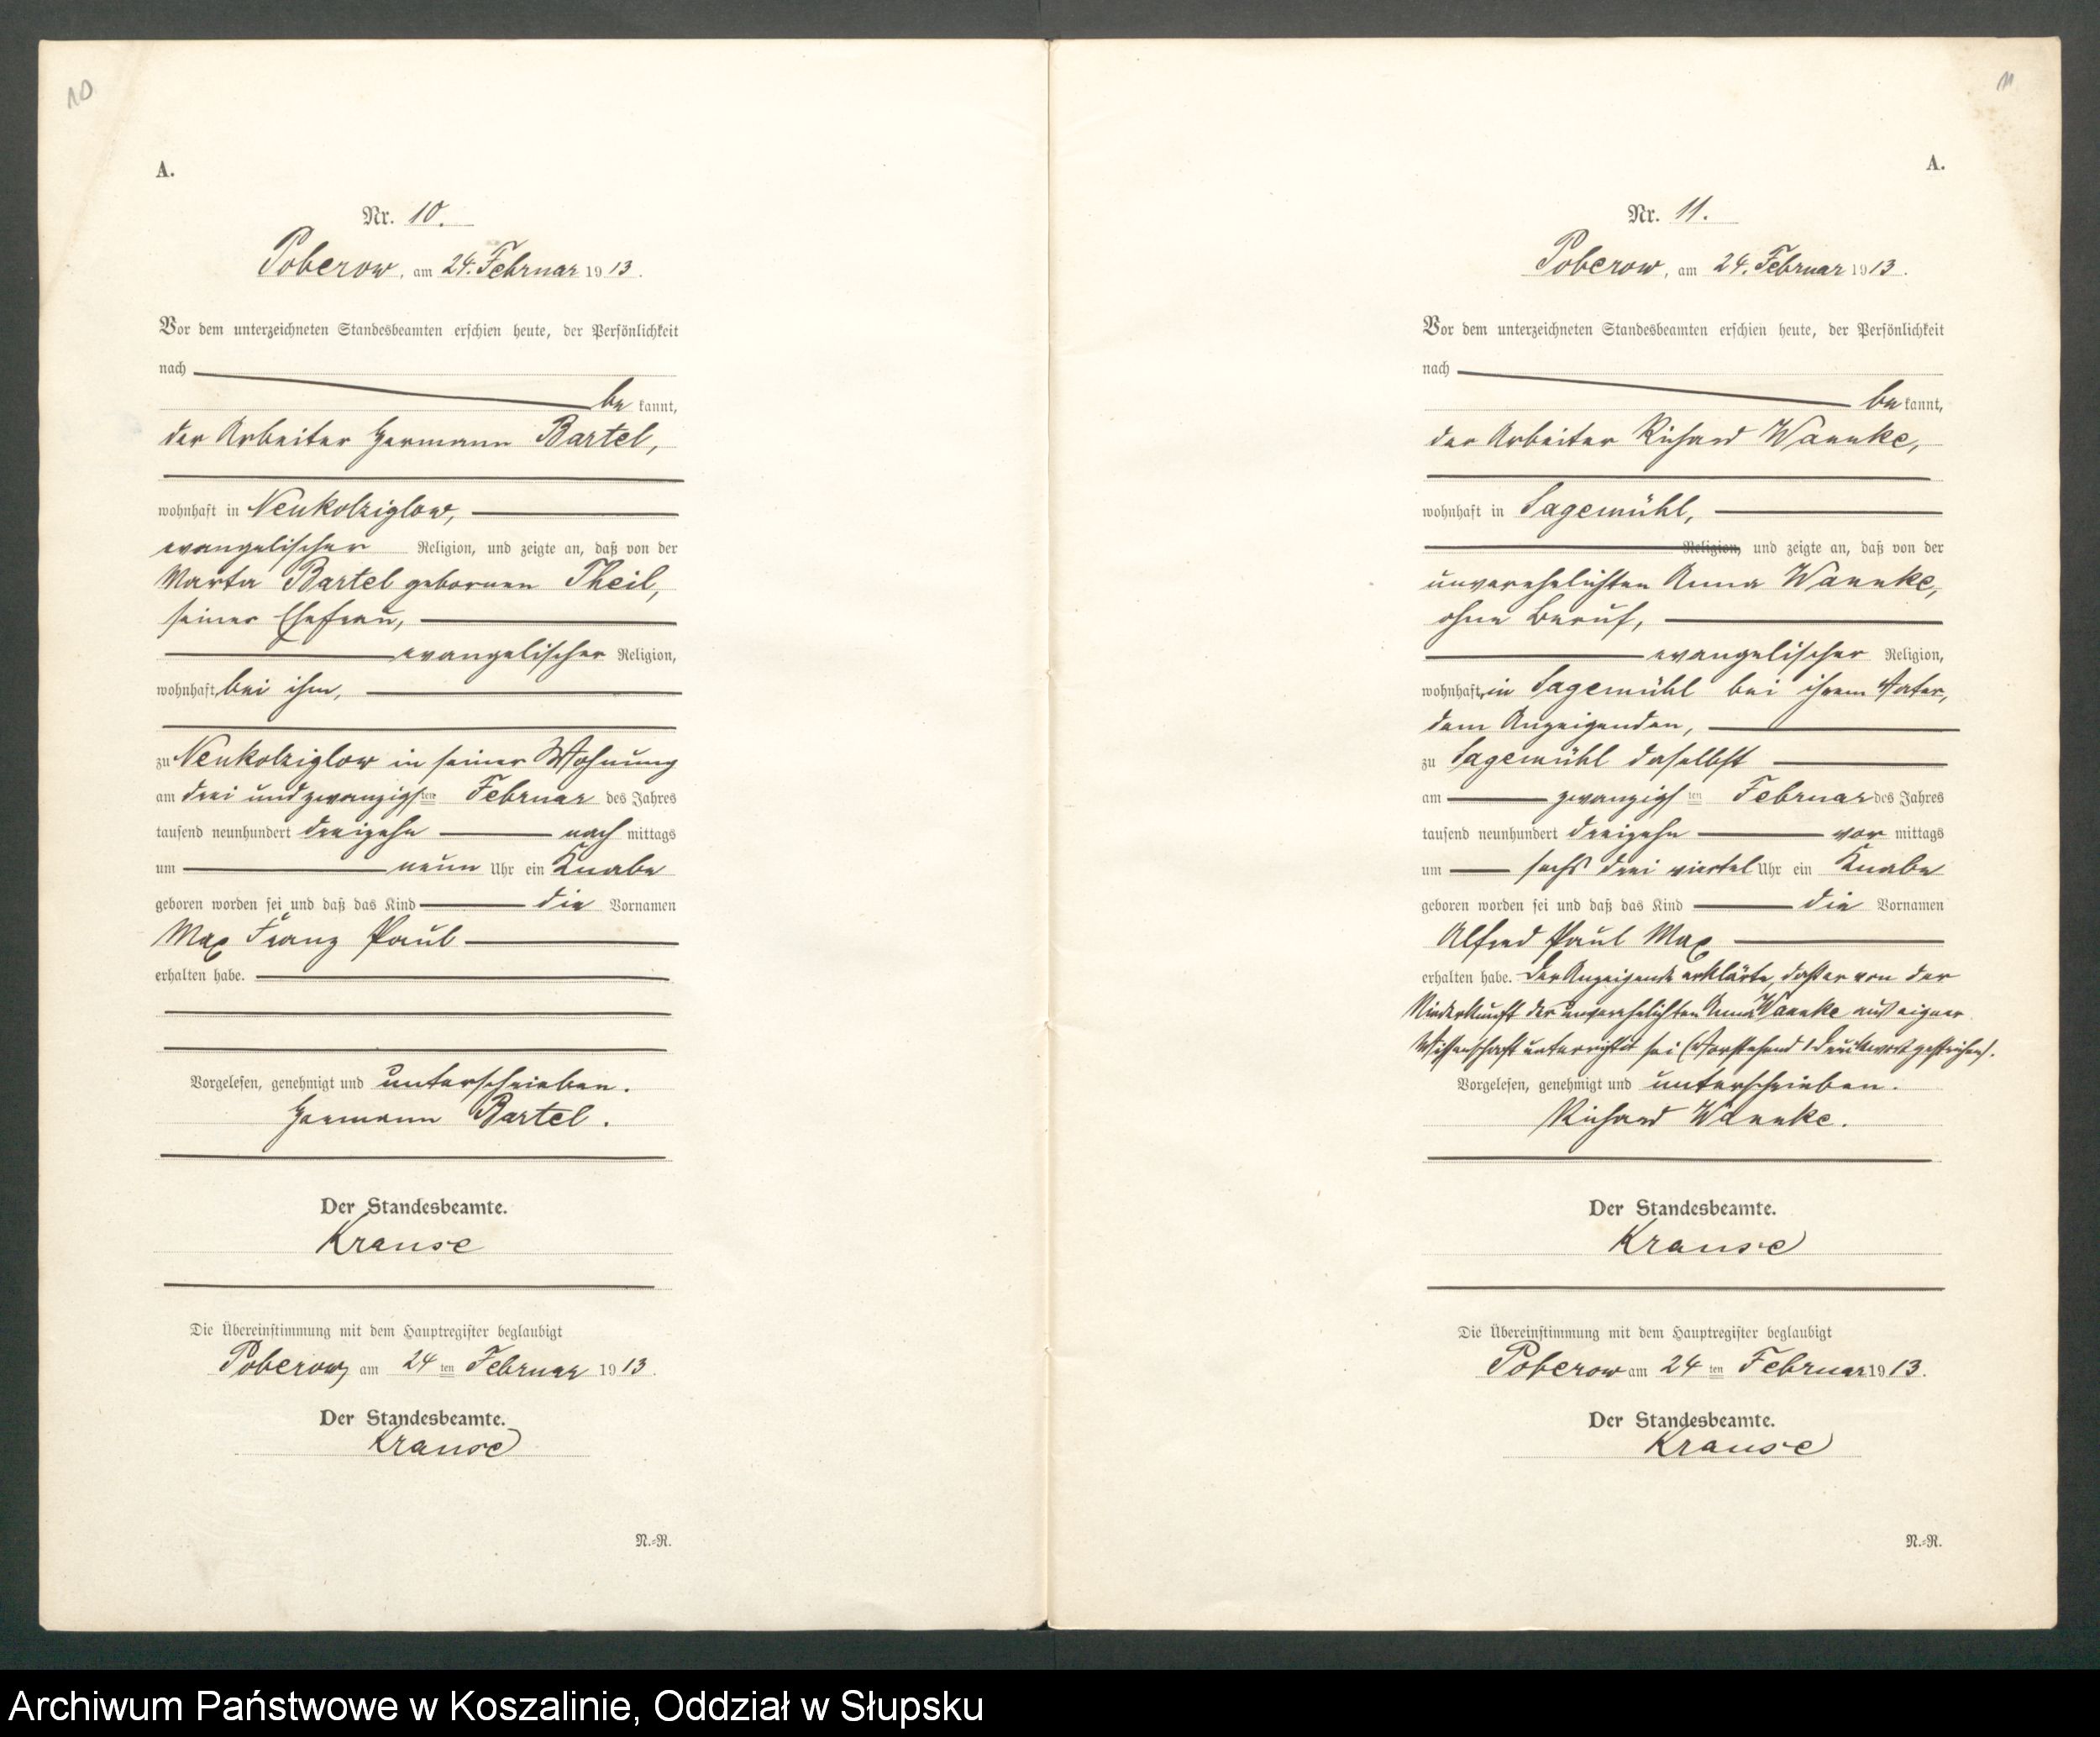 10
A.
Nr. 10.
Poberow, am 24. Februar 1913.
Vor dem unterzeichneten Standesbeamten erschien heute, der Persönlichkeit
nach
be kannt,
der Arbeiter Hermann Bartel,
wohnhaft in Neukolziglow,
evangelischer Religion, und zeigte an, daß von der
Marta Bartel gebornen Theil,
seiner Ehefrau,
evangelischer Religion,
wohnhaft bei ihm,
zu Neukolziglow in seiner Wohnung
am drei und zwanzigsten Februar des Jahres
tausend neunhundert dreizehn nach mittags
um neun Uhr ein Knabe
geboren worden sei und daß das Kind die Vornamen
Max Franz Paul
erhalten habe.
Vorgelesen, genehmigt und unterschrieben.
Hermann Bartel.
Der Standesbeamte.
Krause
Die Übereinstimmung mit dem Hauptregister beglaubigt
Poberow, am 24ten Februar 1913.
Der Standesbeamte.
Krause
N.=R.
11
A.
Nr. 11.
Poberow, am 24. Februar 1913.
Vor dem unterzeichneten Standesbeamten erschien heute, der Persönlichkeit
nach
be kannt,
der Arbeiter Richard Wannke,
wohnhaft in Sagemühl,
Religion, und zeigte an, daß von der
unverehelichten Anna Wannke,
ohne Beruf,
evangelischer Religion,
wohnhaft in Sagemühl bei ihrem Vater,
dem Anzeigenden,
zu Sagemühl daselbst
am zwanzigsten Februar des Jahres
tausend neunhundert dreizehn vor mittags
um sechs drei viertel Uhr ein Knabe
geboren worden sei und daß das Kind die Vornamen
Alfred Paul Max
erhalten habe. Der Anzeigende erklärte, daß er von der
Niederkunft der unverehelichten Anna Wannke aus eigner
Wissenschaft unterrichtet sei (Vorstehend 1 Druckwort gestrichen).
Vorgelesen, genehmigt und unterschrieben.
Richard Wannke.
Der Standesbeamte.
Krause
Die Übereinstimmung mit dem Hauptregister beglaubigt
Poberow am 24ten Februar 1913.
Der Standesbeamte.
Krause
N.=R.
Archiwum Państwowe w Koszalinie, Oddział w Słupsku